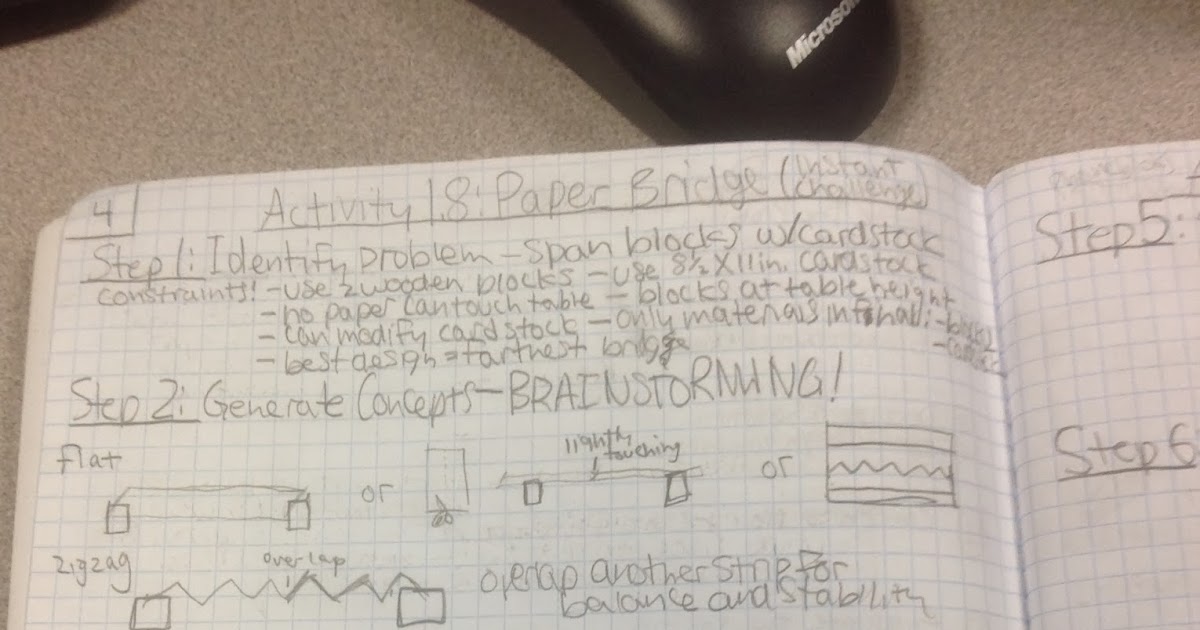 Microsoft
4
Activity 1.8: Paper Bridge (instant challenge)
Step 1: Identify problem - span blocks w/cardstock
constraints: - use 2 wooden blocks - use 8½ X 11 in. cardstock
- no paper can touch table - blocks at table height
- can modify cardstock - only materials in final: - blocks
- best design = farthest bridge
Step 2: Generate Concepts - BRAINSTORMING!
flat
or
lightly touching
or
zigzag
overlap
overlap another strip for
balance and stability
Step 5:
Step 6